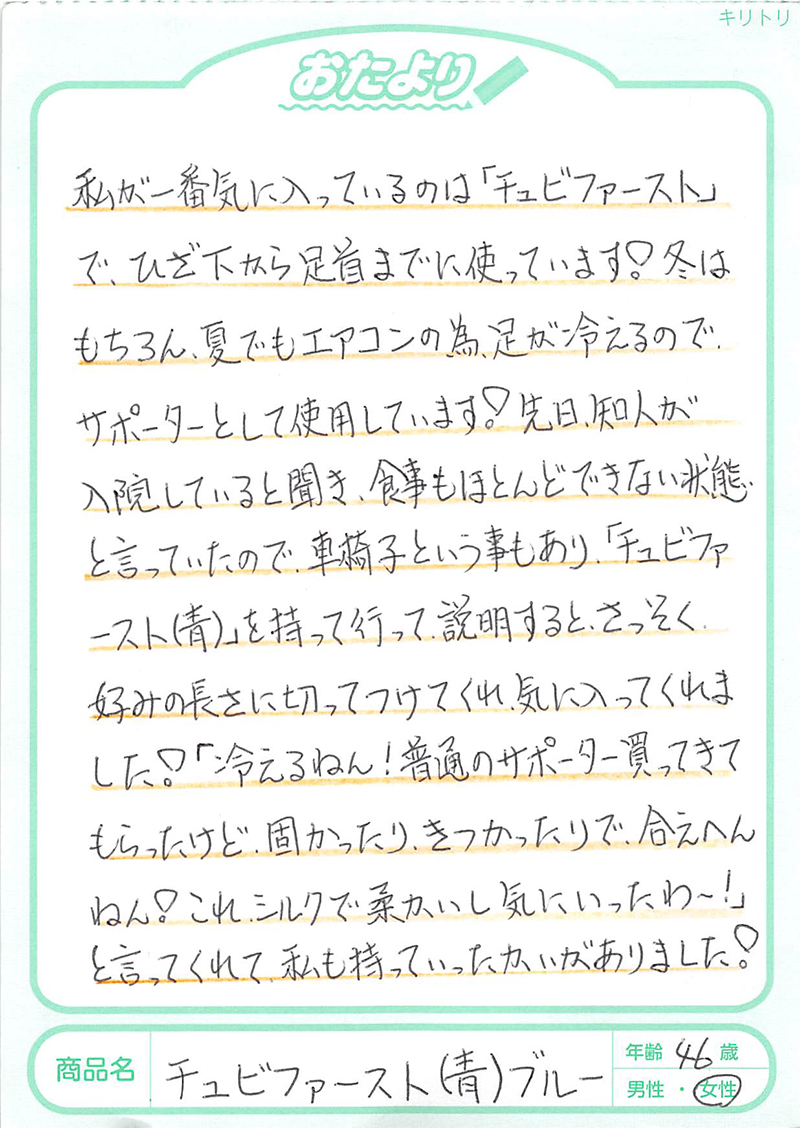 キリトリ
おたより
私が一番気に入っているのは「チュビファースト」
で、ひざ下から足首までに使っています!冬は
もちろん、夏でもエアコンの為、足が冷えるので、
サポーターとして使用しています!先日、知人が
入院していると聞き、食事もほとんどできない状態
と言っていたので、車椅子という事もあり、「チュビファ
ースト(青)」を持って行って、説明すると、さっそく、
好みの長さに切ってつけてくれ、気に入ってくれま
した!「冷えるねん!普通のサポーター買ってきて
もらったけど、固かったり、きつかったりで、合えへん
ねん!これ、シルクで柔かいし気にいったわ〜!」
と言ってくれて、私も持っていったかいがありました!
商品名 チュビファースト(青)ブルー
年齢 46 歳
男性・女性